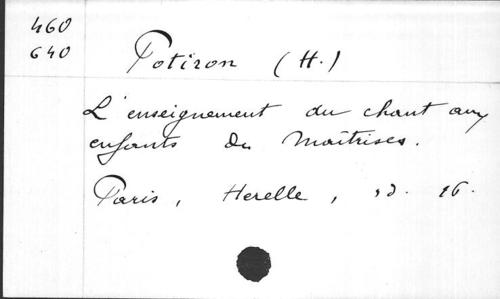 460
640
Potiron (H.)
L'enseignement du chant aux
enfants des Maîtrises.
Paris, Herelle, sd. 16.